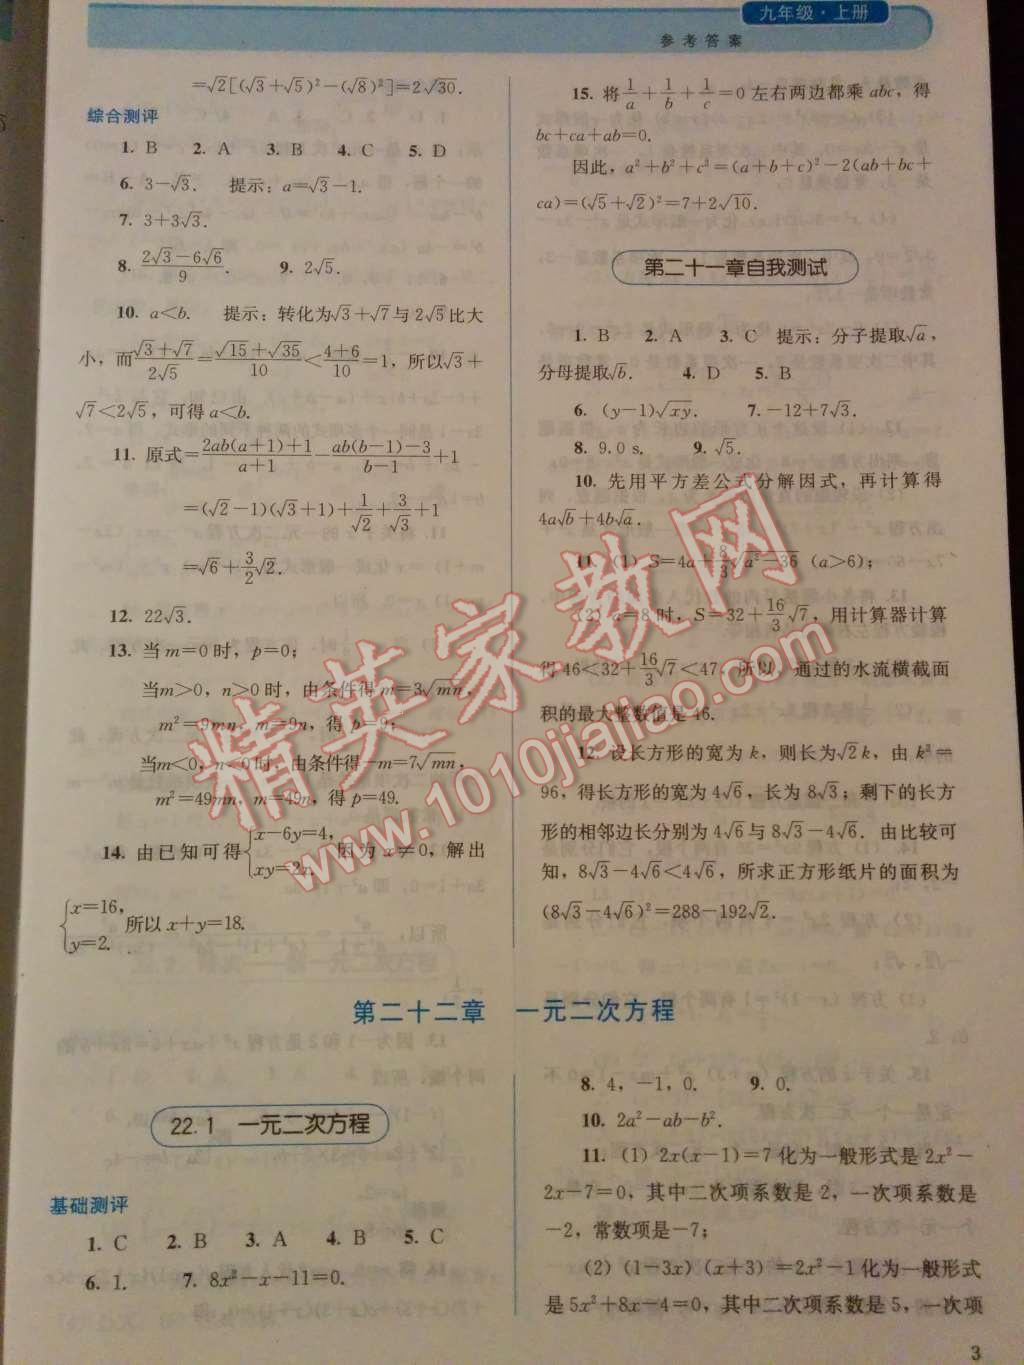 九年级·上册
参考答案
=√2[(√3+√5)²-(√8)²]=2√30.
综合测评
1. B 2. A 3. B 4. C 5. D
6. 3-√3. 提示:a=√3-1.
7. 3+3√3.
8. (2√3-6√6)/9. 9. 2√5.
10. a<b. 提示:转化为√3+√7与2√5比大
小,而(√3+√7)/(2√5)=(√15+√35)/10<(4+6)/10=1,所以√3+
√7<2√5,可得a<b.
11. 原式=(2ab(a+1)+1)/(a+1)-(ab(b-1)-3)/(b-1)+1
=(√2-1)(√3+1)+1/√2+3/√3+1
=√6+(3/2)√2.
12. 22√3.
13. 当m=0时,p=0;
当m>0,n>0时,由条件得m=3√mn,
m²=9mn,m=9n,得p=9;
当m<0,n<0时,由条件得-m=7√mn,
m²=49mn,m=49n,得p=49.
14. 由已知可得{x-6y=4, xy=2x. 因为x≠0,解出
{x=16, y=2. 所以x+y=18.
15. 将1/a+1/b+1/c=0左右两边都乘abc,得
bc+ca+ab=0.
因此,a²+b²+c²=(a+b+c)²-2(ab+bc+
ca)=(√5+√2)²=7+2√10.
第二十一章自我测试
1. B 2. A 3. C 提示:分子提取√a,
分母提取√b. 4. D 5. B
6. (y-1)√xy. 7. -12+7√3.
8. 9.0 s. 9. √5.
10. 先用平方差公式分解因式,再计算得
4a√b+4b√a.
11. (1) S=4a+(8/3)√(a²-36) (a>6);
(2) a=8时,S=32+(16/3)√7,用计算器计算
得46<32+(16/3)√7<47,所以,通过的水流横截面
积的最大整数值是46.
12. 设长方形的宽为k,则长为√2k,由k²=
96,得长方形的宽为4√6,长为8√3;剩下的长方
形的相邻边长分别为4√6与8√3-4√6. 由比较可
知,8√3-4√6<4√6,所求正方形纸片的面积为
(8√3-4√6)²=288-192√2.
第二十二章 一元二次方程
22.1 一元二次方程
基础测评
1. C 2. B 3. A 4. B 5. C
6. 1. 7. 8x²-x-11=0.
8. 4,-1,0. 9. 0.
10. 2a²-ab-b².
11. (1) 2x(x-1)=7化为一般形式是2x²-
2x-7=0,其中二次项系数是2,一次项系数是
-2,常数项是-7;
(2) (1-3x)(x+3)=2x²-1化为一般形式
是5x²+8x-4=0,其中二次项系数是5,一次项
3
精英家教网
www.1010jiajiao.com